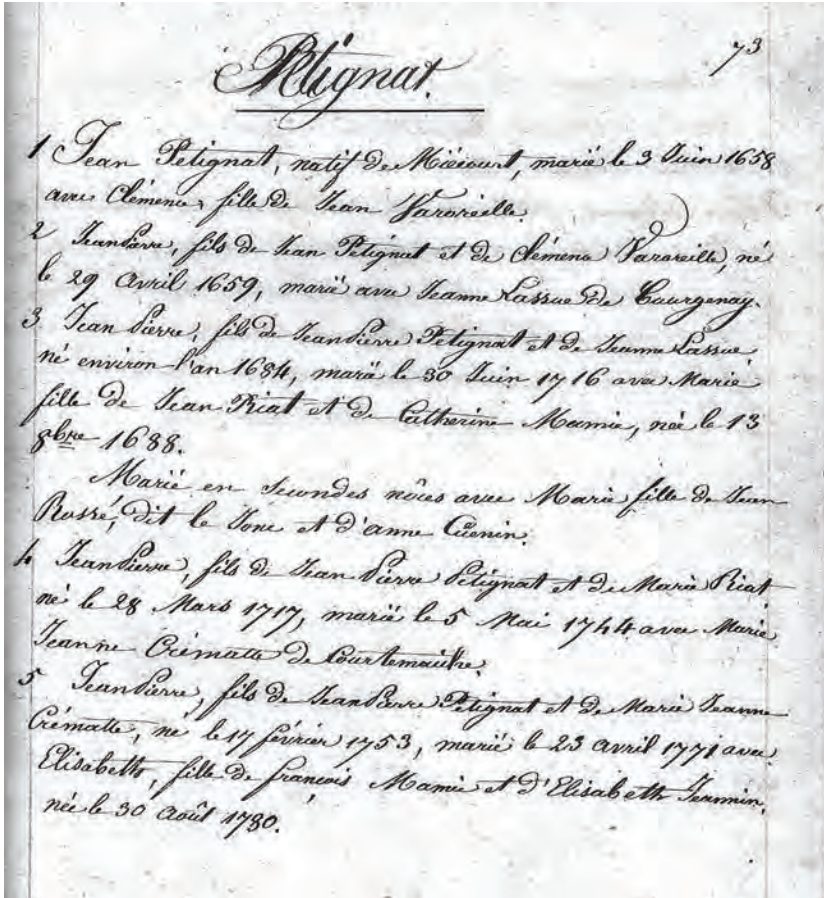 73
Pétignat.
1 Jean Pétignat, natif de Miécourt, marié le 3 Juin 1658
avec Clémence, fille de Jean Varoreille.
2 Jean Pierre, fils de Jean Pétignat et de Clémence Varoreille, né
le 29 Avril 1659, marié avec Jeanne Lassue de Courgenay.
3 Jean Pierre, fils de Jean Pierre Pétignat et de Jeanne Lassue
né environ l'an 1684, marié le 30 Juin 1716 avec Marie
fille de Jean Riat et de Catherine Mamie, née le 13
8bre 1688.
Marié en secondes nôces avec Marie fille de Jean
Rossé, dit le et d'anne Cuenin.
4 Jean Pierre, fils de Jean Pierre Pétignat et de Marie Riat
né le 28 Mars 1717, marié le 5 Mai 1744 avec Marie
Jeanne Crématte de Courtemaiche.
5 Jean Pierre, fils de Jean Pierre Pétignat et de Marie Jeanne
Crématte, né le 17 février 1753, marié le 23 avril 1771 avec
Elisabeth, fille de françois Mamie et d'Elisabeth Jeannin,
née le 30 Août 1780.